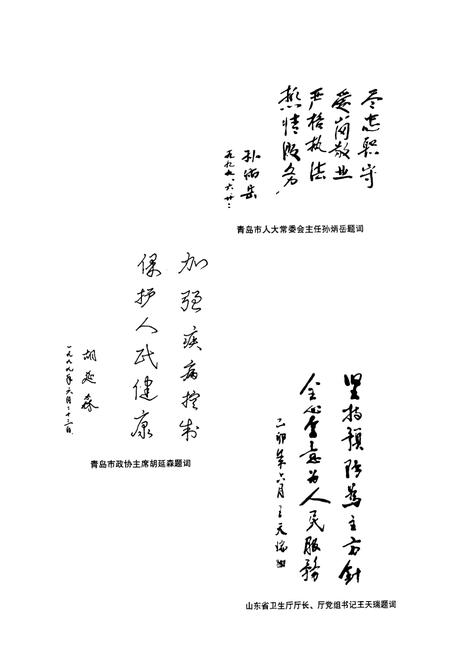 尽忠职守
爱岗敬业
严格执法
热情服务
孙炳岳
九九九、六、廿二
青岛市人大常委会主任孙炳岳题词
加强疾病控制
保护人民健康
胡延森
一九九九年六月二十二日
青岛市政协主席胡延森题词
坚持预防为主方針
全心全意为人民服務
己卯年六月王天瑞
山东省卫生厅厅长、厅党组书记王天瑞题词